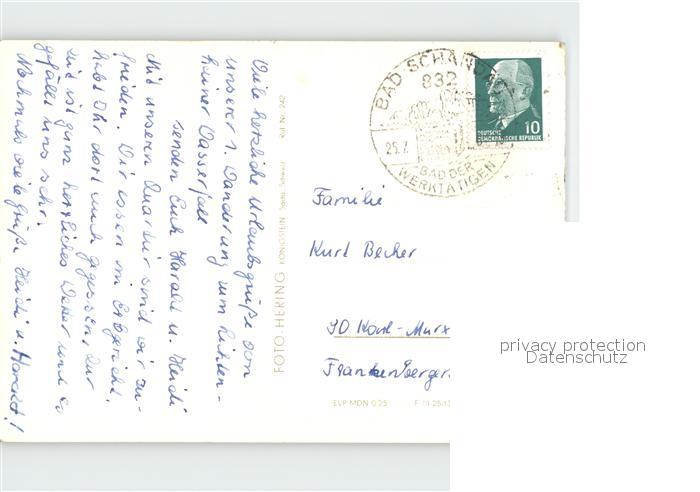 Viele herzliche Urlaubsgrüße von
unserer 1. Wanderung zum Lichten-
hainer Wasserfall
senden Euch Harald u. Heidi
Mit unserem Quartier sind wir zu-
frieden. Wir essen im Erbgericht,
habt Ihr dort auch gegessen? Zur
Zeit ist ganz herrliches Wetter und es
gefällt uns sehr.
Nochmals viele Grüße Heidi u. Harald!
FOTO-HERING KÖNIGSTEIN Sächs. Schweiz
BAD SCHANDAU
832
25.7.
BAD DER
WERKTÄTIGEN
DEUTSCHE
DEMOKRATISCHE REPUBLIK
10
Familie
Kurt Becher
90 Karl-Marx
Frankenberger
EVP MDN 0,25
privacy protection
Datenschutz